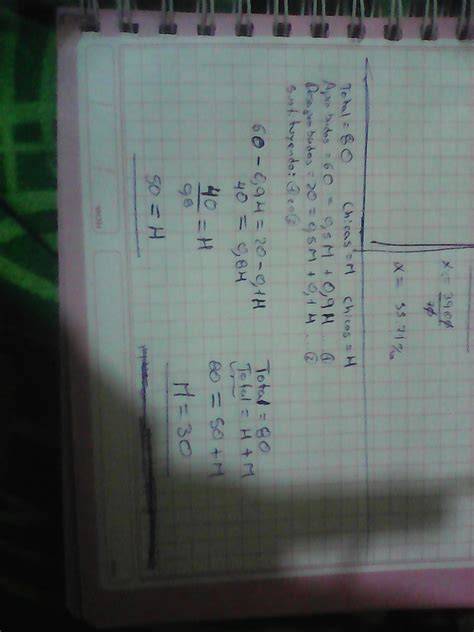 x = 3900
70
x = 55.71%
Total = 80 Chicas = M Chicos = H
Aprobados = 60 = 0,5M + 0,9H ... ①
Desaprobados = 20 = 0,5M + 0,1H ... ②
Sustituyendo: ① en ②
60 - 0,9H = 20 - 0,1H
40 = 0,8H
40 = H
0,8
50 = H
Total = 80
Total = H + M
80 = 50 + M
M = 30